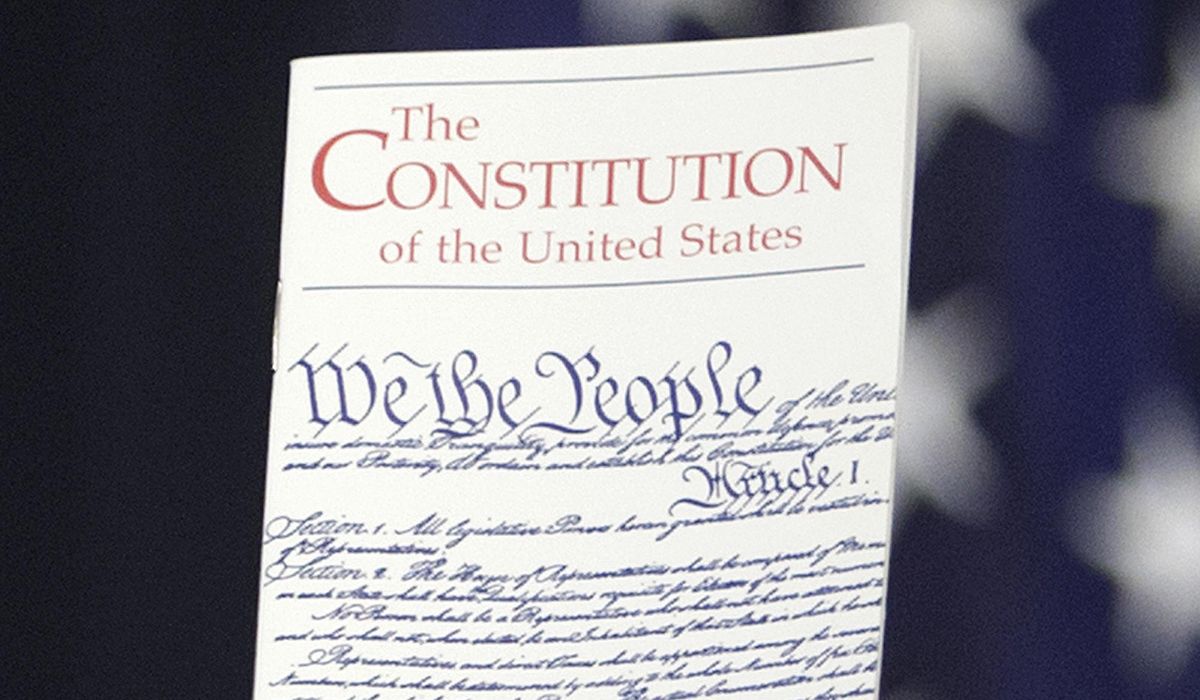 The
CONSTITUTION
of the United States
We the People of the Unit
insure domestic Tranquility, provide for the common defence, promo
and our Posterity, do ordain and establish this Constitution for the U
Article. I.
Section. 1. All legislative Powers herein granted shall be vested in
of Representatives.
Section. 2. The House of Representatives shall be composed of Mem
in each State shall have Qualifications requisite for Electors of the most numero
No Person shall be a Representative who shall not have attained t
and who shall not, when elected, be an Inhabitant of that State in which he
Representatives and direct Taxes shall be apportioned among the several
Numbers, which shall be determined by adding to the whole Number of free